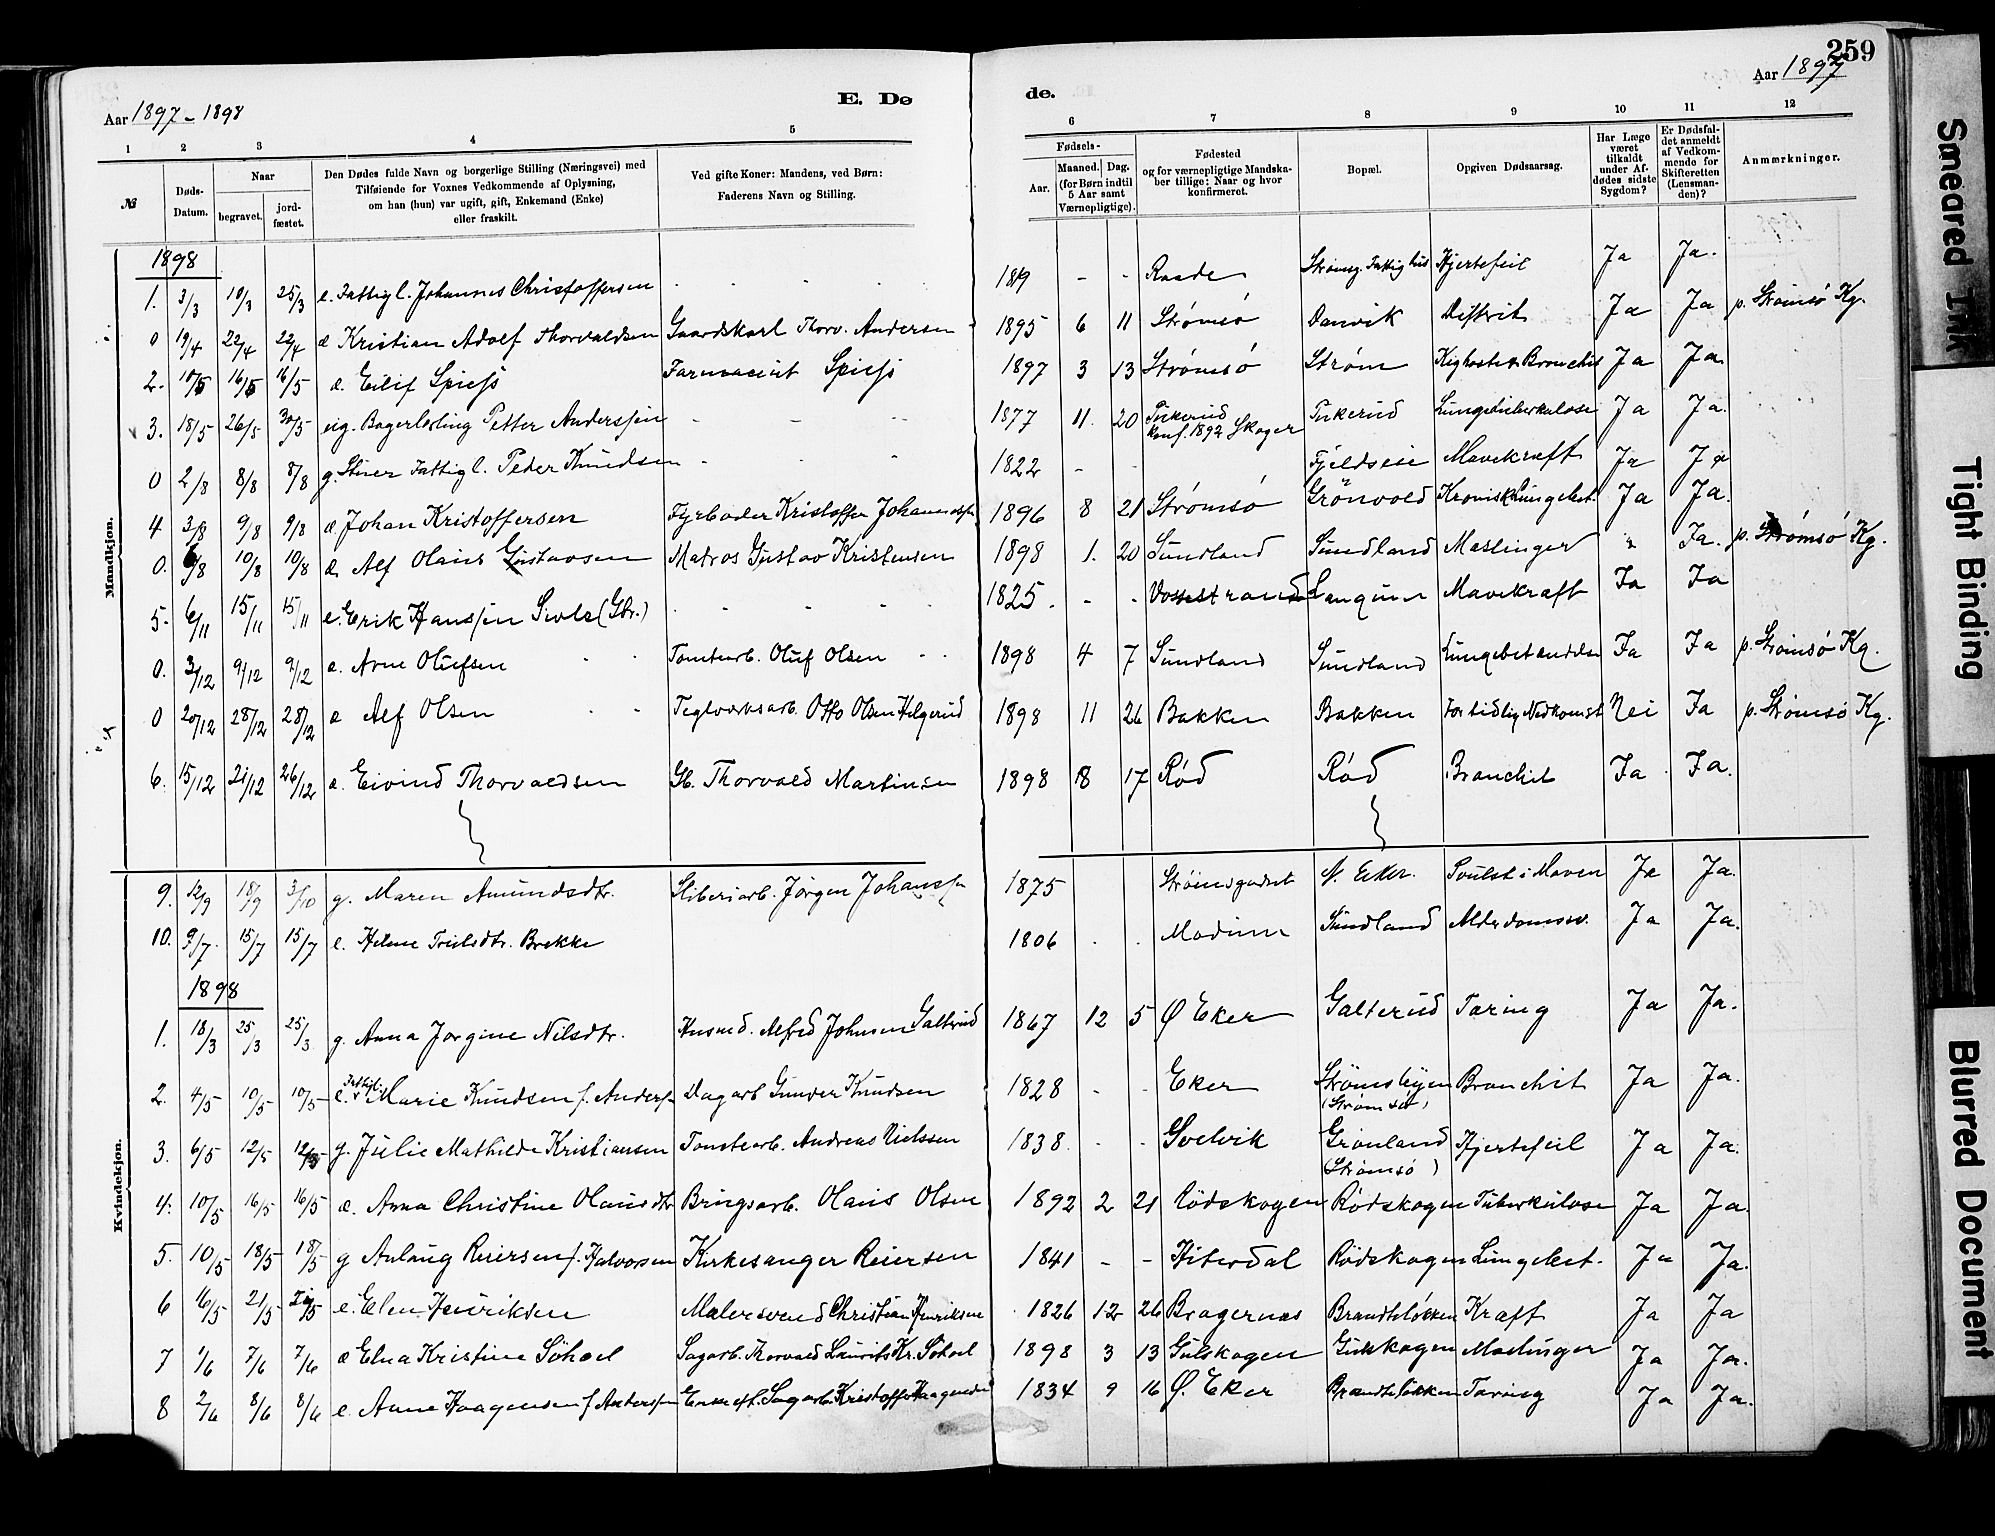 259
Aar 1897 - 1898
E. Dø
de.
Aar 1897
1 2 3 4 5 6 7 8 9 10 11 12
№
Døds-Datum.
Naar
begravet.
jord-fæstet.
Den Dødes fulde Navn og borgerlige Stilling (Næringsvei) med
Tilføiende for Voxnes Vedkommende af Oplysning,
om han (hun) var ugift, gift, Enkemand (Enke)
eller fraskilt.
Ved gifte Koner: Mandens, ved Børn:
Faderens Navn og Stilling.
Fødsels-
Aar.
Maaned. Dag.
(for Børn indtil
5 Aar samt
Værnepligtige).
Fødested
og for værnepligtige Mandska-
ber tillige: Naar og hvor
konfirmeret.
Bopæl.
Opgiven Dødsaarsag.
Har Læge
været
tilkaldt
under Af-
dødes sidste
Sygdom?
Er Dødsfal-
det anmeldt
af Vedkom-
mende for
Skifteretten
(Lensman-
den)?
Anmærkninger.
Mandkjøn.
1898
1. 3/3 10/3 25/3 e. Fattigl. Johannes Christoffersen - - - 1819 - - Raade Strømsg. Fattighus Hjertefeil Ja Ja.
0 19/4 22/4 22/4 æ Kristian Adolf Thorvaldsen Gaardskarl Thorv. Andersen 1895 6 11 Strømsö Danvik Difterit Ja Ja p. Strömsö Kg.
2. 10/5 16/5 16/5 æ. Eilif Spiess Farmaceut Spiess 1897 3 13 Strømsö Strøm Kighoste Bronchit Ja Ja.
3. 18/5 26/5 30/5 ug. Bagerlærling Petter Anderssen - - - 1877 11. 20 konf. 1892 Skoger Lungetuberkulose Ja Ja.
0 2/8 8/8 8/8 g. Fattigl. Peder Knudsen - - - 1822 - - Fjeldseie Mavekræft Ja Ja
4 3/8 9/8 9/8 æ Johan Kristoffersen Fyrbøder Kristoffer Johannessen 1896 8 21 Strømsö Grönvold Kronisk Lungebet. Ja Ja.
0. 6/8 10/8 10/8 æ. Alf Olaus Gustavsen Matros Gustav Kristensen 1898 1. 20 Sundland Sundland Meslinger Ja. p. Strömsö Kg.
5. 6/11 15/11 15/11 e. Erik Hanssen (Gbr.) - - - 1825. - - Vossestrand Mavekræft Ja Ja
0. 3/12 9/12 9/12 æ. Arne Olufsen Tomtearb. Oluf Olsen 1898 4 7 Sundland Sundland Lungebetændelse Ja Ja p. Strömsö Kg.
0 20/12 28/12 28/12 æ Alf Olsen Teglværksarb. Otto Olsen Helgerud 1898 11 26 Bakken Bakken For tidlig Nedkomst Nei Ja p. Strömsö Kg.
6. 15/12 21/12 26/12 æ. Eivind Thorvaldsen Gb. Thorvald Martinsen 1898 8 17 Rød Rød Bronchit Ja Ja.
Kvindekjøn.
9. 12/9 18/9 3/10 g. Maren Amundsdtr. Sliberiarb. Jørgen Johanssen 1875 Strömsgodset N. Eker. Svulst i Maven Ja Ja.
10. 9/7. 15/7 15/7 e. Helene Truelsdtr. Brekke 1806 - - Modum Sundland Alderdomssv. Ja Ja.
1898
1. 18/3 25/3 25/3 g. Anna Jorgine Nilsdtr. Husmd. Alfred Johnsen Galterud 1867 12 5 Ø Eker Galterud Tæring Ja Ja.
2. 4/5 10/5 10/5 e. Fattigl. Marie Knudsen f. Anders. Dagarb Gunder Knudsen 1828 - - Eker (Strømsö) Bronchit Ja Ja.
3. 6/5 12/5 12/5 g. Julie Mathilde Kristiansen Tomtearb. Andreas Nielssen 1838. - - Svelvik Grönland (Strømsö) Hjertefeil Ja Ja.
4. 10/5 16/5 16/5 æ. Anna Christine Olausdtr Brugsarb. Olaus Olsen 1892 2 21 Rödskogen Rödskogen Tuberkulose Ja Ja.
5. 10/5 18/5 18/5 g Aslaug Reiersen f. Halvorsen Kirkesanger Reiersen 1841 - - Hiterdal Rödskogen Lungebet. Ja Ja.
6 16/5 21/5 21/5 e. Elen Henriksen Malersvend Christian Henriksen 1826 12 26 Bragernæs Brandtsløkken Kræft Ja Ja
7 1/6 7/6 7/6 æ Elna Kristine Söhoel Sagarb. Thorvald Laurits Kr. Söhoel 1898 3 13 Gulskogen Gulskogen Meslinger Ja Ja.
8 2/6 8/6 8/6 e. Anne Haagensen f. Anderssen Enke eft. Sagarb. Kristoffer Haagensen 1834 9 16 Ø. Eker Brandtsløkken Tæring Ja Ja.
Smeared Ink
Tight Binding
Blurred Document